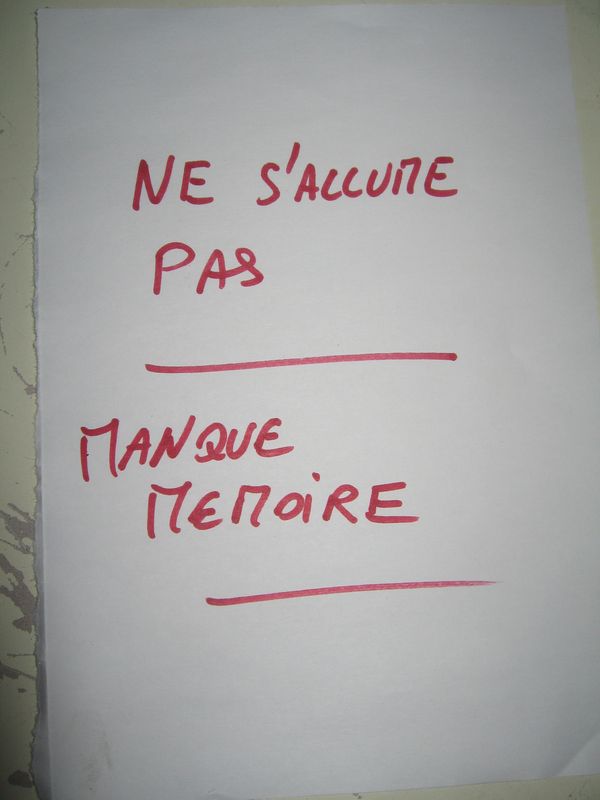 NE S'ALLUME
PAS
MANQUE
MEMOiRE